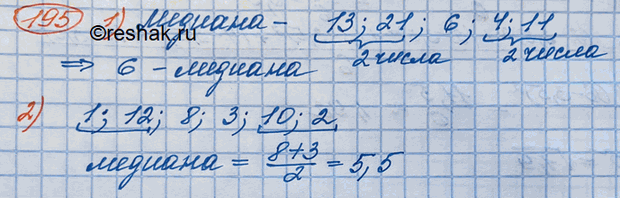 195 1) Медиана - 13; 21; 6; 4; 11
©reshak.ru
2 числа 2 числа
⇒ 6 - медиана
2) 1; 12; 8; 3; 10; 2
медиана = 8+3/2 = 5,5